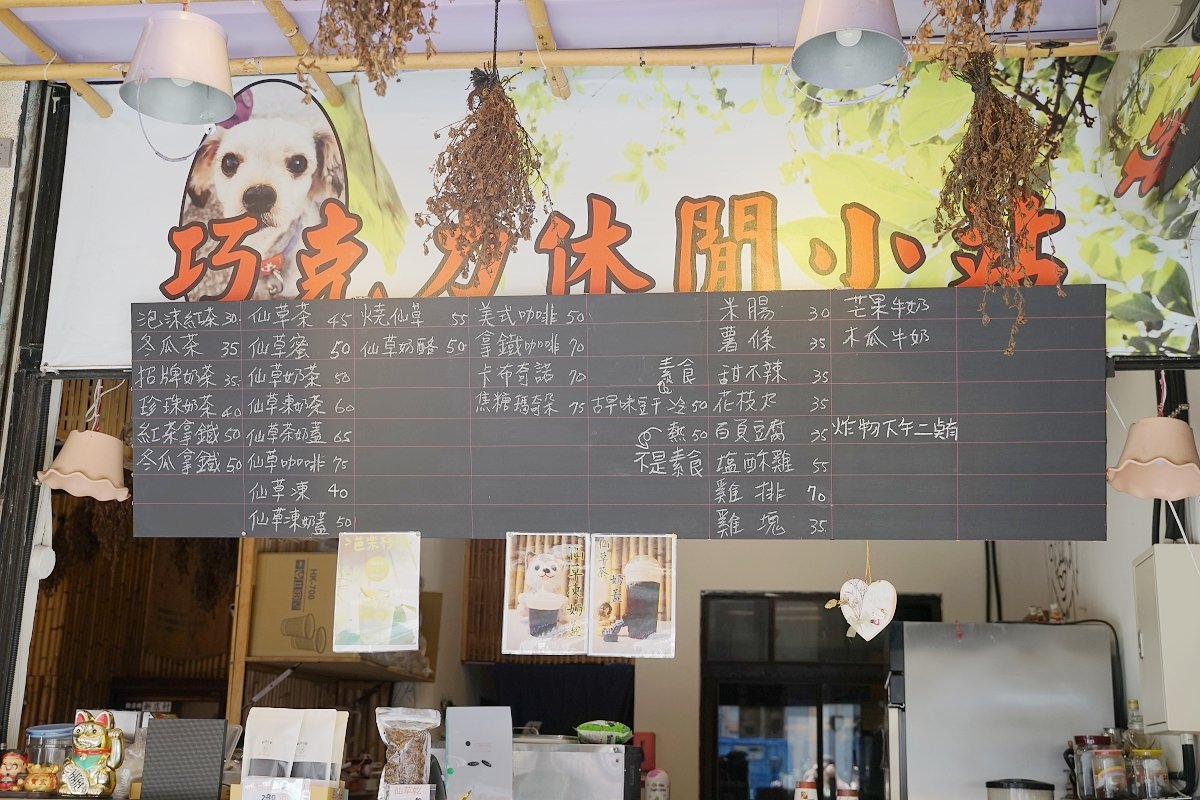 巧克力休閒小站
泡沫紅茶 30
冬瓜茶 35
招牌奶茶 35
珍珠奶茶 40
紅茶拿鐵 50
冬瓜拿鐵 50
仙草茶 45
仙草蜜 50
仙草奶茶 50
仙草凍奶茶 60
仙草茶奶蓋 65
仙草咖啡 75
仙草凍 40
仙草凍奶蓋 50
燒仙草 55
仙草奶酪 50
美式咖啡 50
拿鐵咖啡 70
卡布奇諾 70
焦糖瑪奇朵 75
素食
古早味豆干 冷 50
熱 50
不是素食
米腸 30
薯條 35
甜不辣 35
花枝丸 35
百頁豆腐 35
塩酥雞 55
雞排 70
雞塊 35
芒果牛奶
木瓜牛奶
炸物下午二點有
仙草茶
奶蓋
HK-700